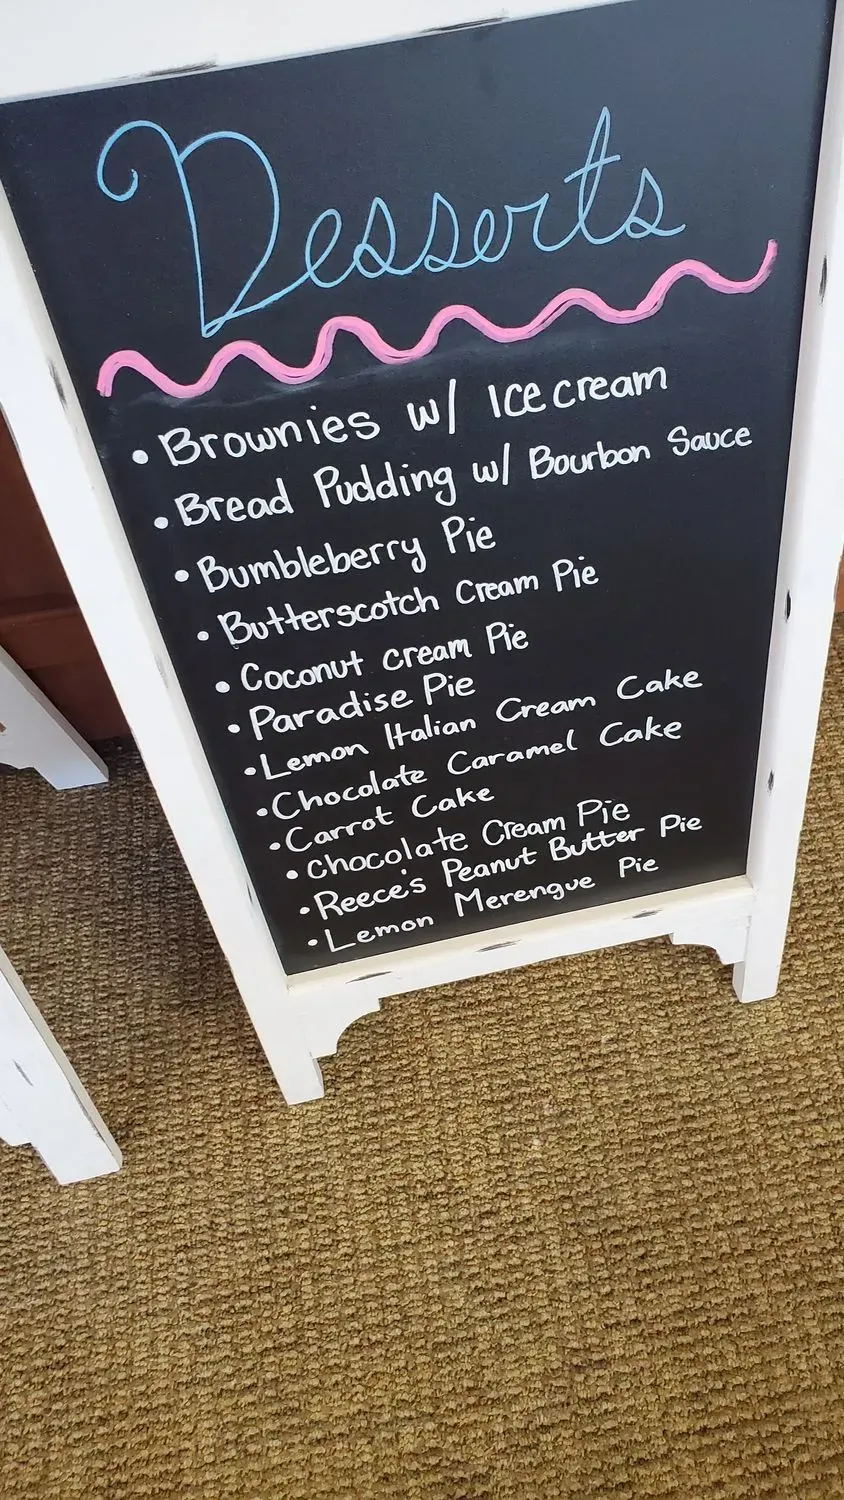 Desserts
• Brownies w/ Icecream
• Bread Pudding w/ Bourbon Sauce
• Bumbleberry Pie
• Butterscotch Cream Pie
• Coconut cream Pie
• Paradise Pie
• Lemon Italian Cream Cake
• Chocolate Caramel Cake
• Carrot Cake
• Chocolate Cream Pie
• Reece's Peanut Butter Pie
• Lemon Merengue Pie